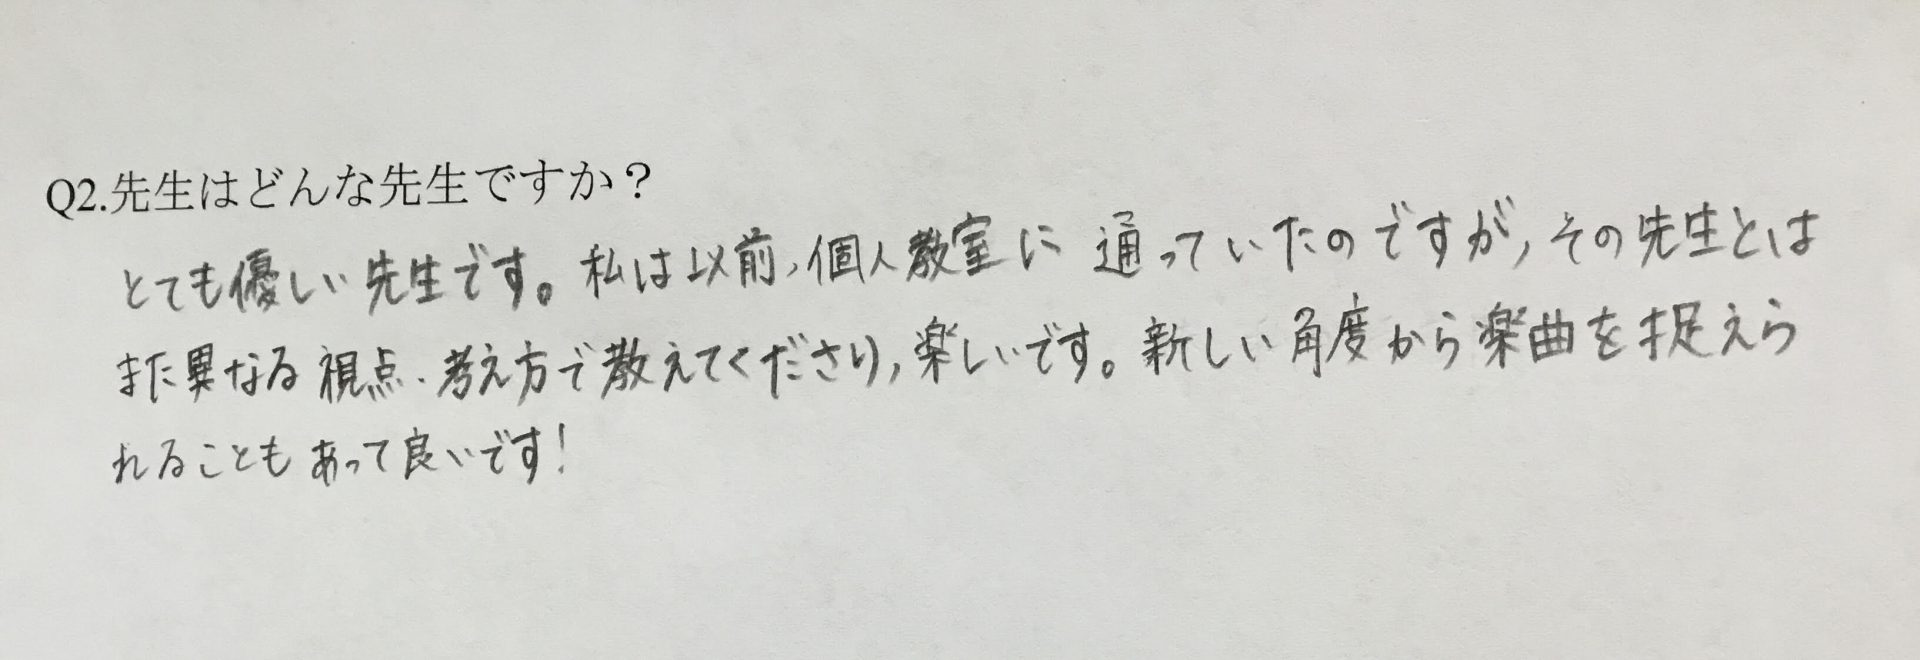 Q2.先生はどんな先生ですか？
とても優しい先生です。私は以前、個人教室に通っていたのですが、その先生とは
また異なる視点、考え方で教えてくださり、楽しいです。新しい角度から楽曲を捉えら
れることもあって良いです!